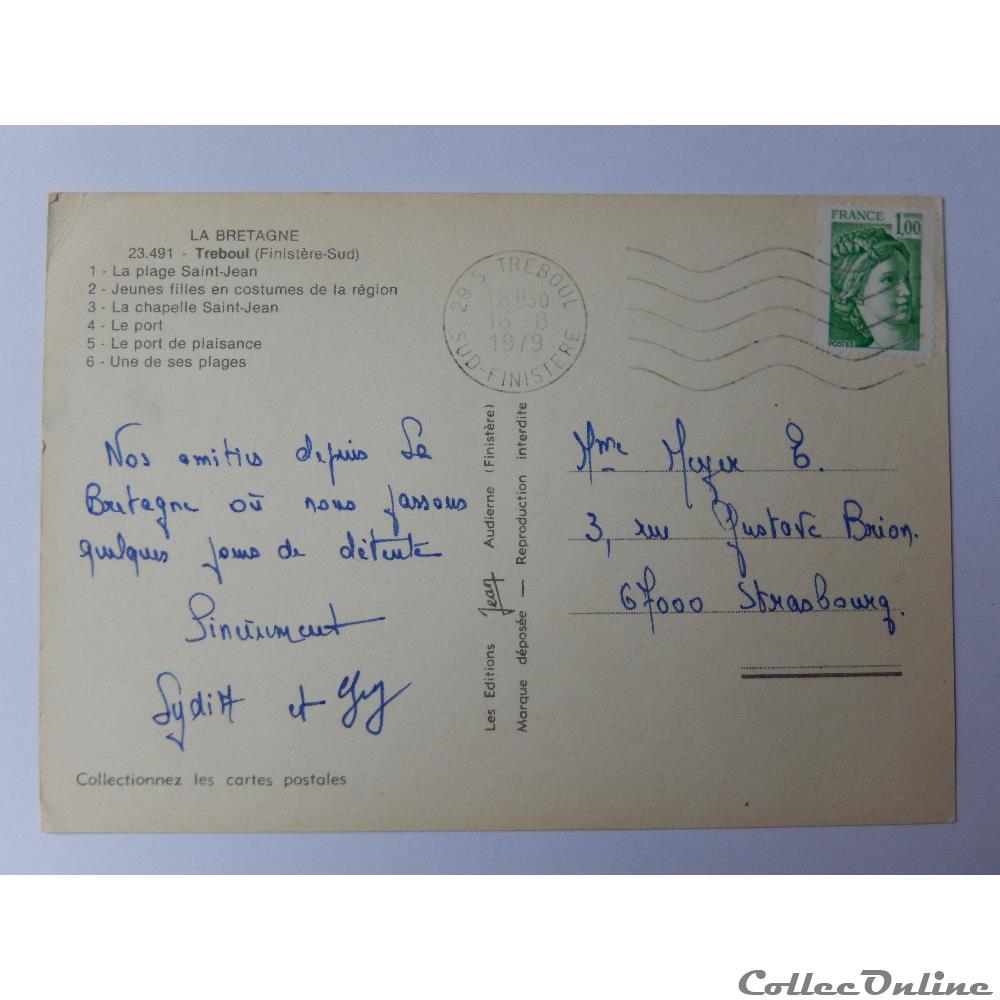 LA BRETAGNE
23.491 - Treboul (Finistère-Sud)
1 - La plage Saint-Jean
2 - Jeunes filles en costumes de la région
3 - La chapelle Saint-Jean
4 - Le port
5 - Le port de plaisance
6 - Une de ses plages
29 S TREBOUL
18H30
16 -8
1979
SUD-FINISTERE
FRANCE 1,00
POSTES
Nos amitiés depuis La
Bretagne où nous passons
quelques jours de détente
Sincèrement
et Guy
Collectionnez les cartes postales
Les Editions Jean Audierne (Finistère)
Marque déposée — Reproduction interdite
Mme Meyer E.
3, rue Gustave Brion.
67000 Strasbourg.
CollecOnline